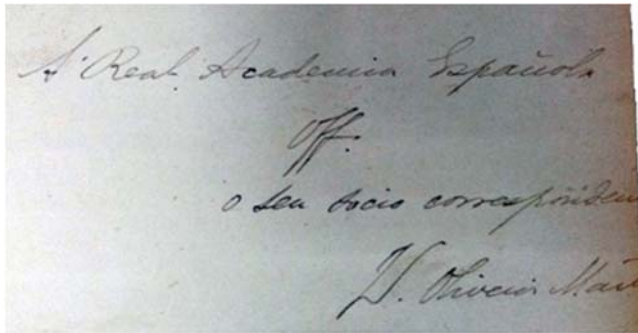 A' Real Academia Española
Off.
o seu socio corresponden
J. P. Oliveira Mar